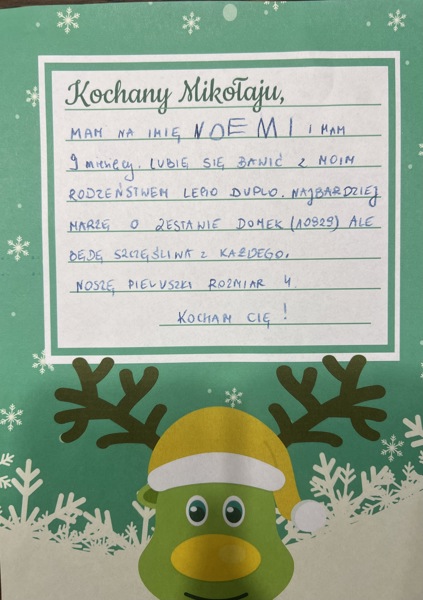 Kochany Mikołaju,
MAM NA IMIĘ NOEMI I MAM
9 miesięcy. LUBIĘ SIĘ BAWIĆ Z MOIM
RODZEŃSTWEM LEGO DUPLO. NAJBARDZIEJ
MARZĘ O ZESTAWIE DOMEK (10929) ALE
BĘDĘ SZCZĘŚLIWA Z KAŻDEGO.
NOSZĘ PIELUSZKI ROZMIAR 4.
KOCHAM CIĘ!